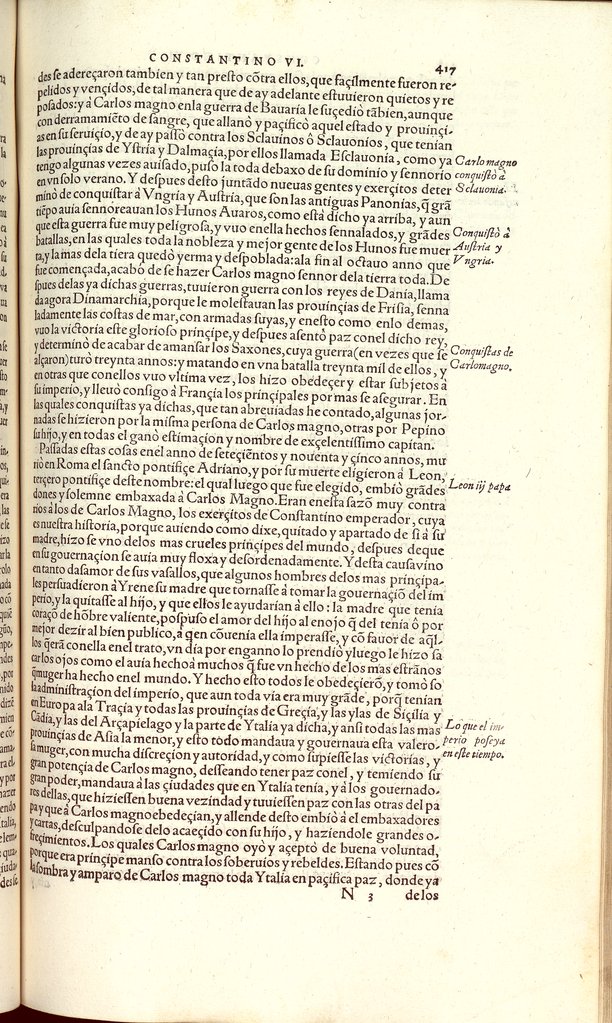 CONSTANTINO VI.
417
des se adereçaron tambien y tan presto cõtra ellos, que façilmente fueron re-
pelidos y vençidos, de tal manera que de ay adelante estuuieron quietos y re
posados: y à Carlos magno en la guerra de Bauaria le suçediò tãbien, aunque
con derramamiẽto de sangre, que allanò y paçificò aquel estado y prouinçi-
as en su seruiçio, y de ay passò contra los Sclauinos ô Sclauonios, que tenian
las prouinçias de Ystria y Dalmaçia, por ellos llamada Esclauonia, como ya
tengo algunas vezes auisado, puso la toda debaxo de su dominio y sennorio
en vn solo verano. Y despues desto juntãdo nueuas gentes y exerçitos deter
minò de conquistar à Vngria y Austria, que son las antiguas Panonias, q̃ grã
tiẽpo auia sennoreauan los Hunos Auaros, como està dicho ya arriba, y aun
que esta guerra fue muy peligrosa, y vuo en ella hechos sennalados, y grãdes
batallas, en las quales toda la nobleza y mejor gente de los Hunos fue muer
ta, y la mas dela tiera quedò yerma y despoblada: ala fin al octauo anno que
fue començada, acabò de se hazer Carlos magno sennor dela tierra toda. De
spues delas ya dichas guerras, tuuieron guerra con los reyes de Dania, llama
da agora Dinamarchia, porque le molestauan las prouinçias de Frisia, senna
ladamente las costas de mar, con armadas suyas, y en esto como en lo demas,
vuo la victoria este glorioso prinçipe, y despues asentò paz con el dicho rey,
y determinò de acabar de amansar los Saxones, cuya guerra (en vezes que se
alçaron) turò treynta annos: y matando en vna batalla treynta mil de ellos, y
en otras que con ellos vuo vltima vez, los hizo obedeçer y estar subjetos à
su imperio, y lleuò consigo à Françia los prinçipales por mas se asegurar. En
las quales conquistas ya dichas, que tan abreuiadas he contado, algunas jor-
nadas se hizieron por la misma persona de Carlos magno, otras por Pepino
su hijo, y en todas el ganò estimaçion y nombre de exçelentissimo capitan.
Passadas estas cosas en el anno de seteçientos y nouenta y çinco annos, mu
riò en Roma el sancto pontifiçe Adriano, y por su muerte eligieron à Leon,
terçero pontifiçe deste nombre: el qual luego que fue elegido, embiò grãdes
dones y solemne embaxada à Carlos Magno. Eran en esta sazõ muy contra
rios à los de Carlos Magno, los exerçitos de Constantino emperador, cuya
es nuestra historia, porque auiendo como dixe, quitado y apartado de si à su
madre, hizo se vno de los mas crueles prinçipes del mundo, despues de que
en su gouernaçion se auia muy floxa y desordenadamente. Y desta causa vino
en tanto dasamor de sus vasallos, que algunos hombres de los mas prinçipa-
les persuadieron à Yrene su madre que tornasse à tomar la gouernaçiõ del im
perio, y la quitasse al hijo, y que ellos le ayudarian à ello: la madre que tenia
coraçõ de hõbre valiente, pospuso el amor del hijo al enojo q̃ del tenia ô por
mejor dezir al bien publico, à qen cõuenia ella imperasse, y cõ fauor de aq̃l-
los q̃erã con ella en el trato, vn dia por enganno lo prendiò y luego le hizo sa
carlos ojos como el auia hecho à muchos q̃ fue vn hecho de los mas estrãnos
q̃ muger ha hecho en el mundo. Y hecho esto todos le obedeçierõ, y tomò so
la administraçion del imperio, que aun toda via era muy grãde, porq̃ tenian
en Europa ala Traçia y todas las prouinçias de Greçia, y las ylas de Siçilia y
Cãdia, y las del Arçapielago y la parte de Ytalia ya dicha, y ansi todas las mas
prouinçias de Asia la menor, y esto todo mandaua y gouernaua esta valero-
sa muger, con mucha discreçion y autoridad, y como supiesse las victorias, y
gran potençia de Carlos magno, desseando tener paz con el, y temiendo su
gran poder, mandaua à las çiudades que en Ytalia tenia, y à los gouernado-
res dellas, que hiziessen buena vezindad y tuuiessen paz con las otras del pa
pa y que à Carlos magno obedeçian, y allende desto embiò à el embaxadores
y cartas, desculpandose delo acaeçido con su hijo, y haziendole grandes o-
freçimientos. Los quales Carlos magno oyò y açeptò de buena voluntad,
porque era prinçipe manso contra los soberuios y rebeldes. Estando pues cõ
la sombra y amparo de Carlos magno toda Ytalia en paçifica paz, donde ya
N 3 de los
Carlo magno
conquistò à
Sclauonia.
Conquistò à
Austria y
Vngria.
Conquistas de
Carlomagno.
Leon iij papa
Lo que el im-
perio poseya
en este tiempo.